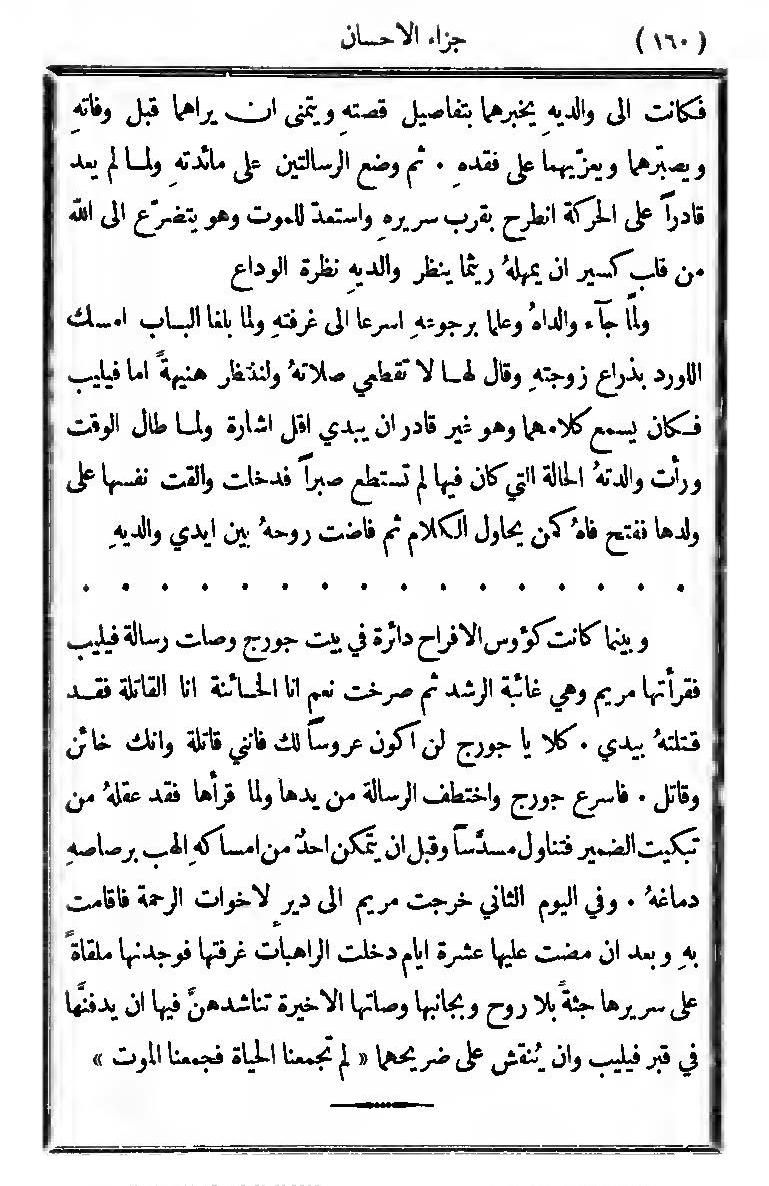 (١٦٠) جزاء الاحسان
فكانت الى والديهِ يخبرهما بتفاصيل قصتهِ ويتمنى ان يراهما قبل وفاتهِ
ويصبّرهما ويعزّيهما على فقدهِ . ثم وضع الرسالتين على مائدتهِ ولما لم يعد
قادراً على الحركة انطرح بقرب سريرهِ واستعدّ للموت وهو يتضرّع الى الله
من قلبٍ كسير ان يمهلهُ ريثما ينظر والديهِ نظرة الوداع
ولمّا جآء والداهُ وعلما برجوعهِ اسرعا الى غرفتهِ ولما بلغا الباب امسك
اللورد بذراع زوجتهِ وقال لها لا تقطعي صلاتهُ ولننتظر هنيهةً اما فيليب
فكان يسمع كلامهما وهو غير قادر ان يبدي اقل اشارة ولما طال الوقت
ورأت والدتهُ الحالة التي كان فيها لم تستطع صبراً فدخلت والقت نفسها على
ولدها ففتح فاهُ كمن يحاول الكلام ثم فاضت روحهُ بين ايدي والديهِ
. . . . . . . . . . . . . . . .
وبينما كانت كؤوس الافراح دائرة في بيت جورج وصلت رسالة فيليب
فقرأتها مريم وهي غائبة الرشد ثم صرخت نعم انا الخائنة انا القاتلة فقد
قتلتهُ بيدي . كلا يا جورج لن اكون عروساً لك فانني قاتلة وانك خائن
وقاتل . فاسرع جورج واختطف الرسالة من يدها ولما قرأها فقد عقلهُ من
تبكيت الضمير فتناول مسدّساً وقبل ان يتمكن احدٌ من امساكهِ الهب برصاصهِ
دماغهُ . وفي اليوم الثاني خرجت مريم الى ديرٍ لاخوات الرحمة فاقامت
بهِ وبعد ان مضت عليها عشرة ايام دخلت الراهبات غرفتها فوجدنها ملقاةً
على سريرها جثةً بلا روح وبجانبها وصاتها الاخيرة تناشدهنَّ فيها ان يدفنَّها
في قبر فيليب وان يُنقش على ضريحهما « لم تجمعنا الحياة فجمعنا الموت »